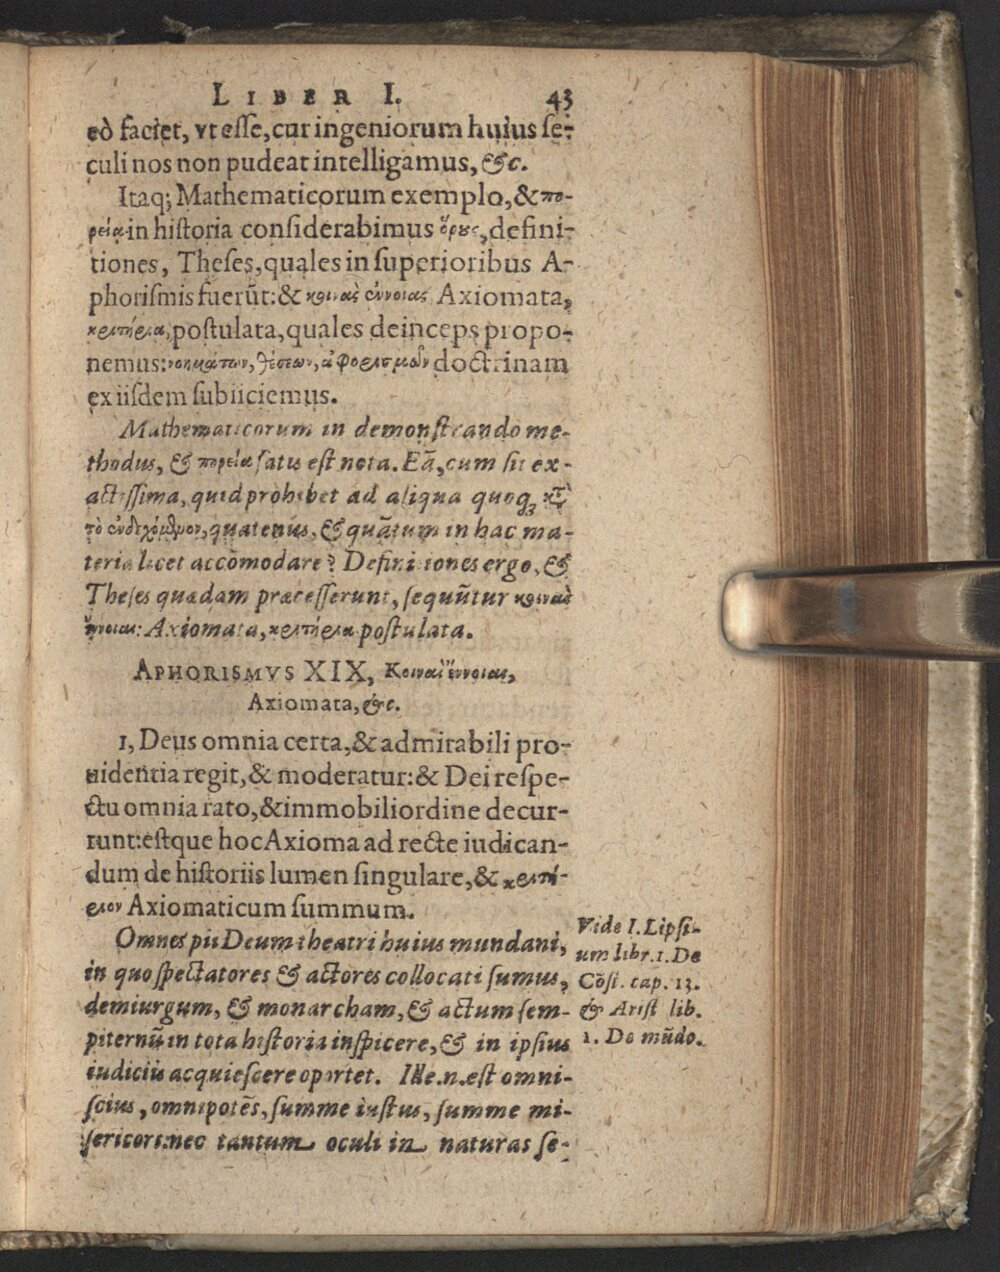 LIBER I. 43
eò faciet, vt esse, cur ingeniorum huius se-
culi nos non pudeat intelligamus, &c.
Itaq; Mathematicorum exemplo, & πο-
ρείᾳ in historia considerabimus ὅρȣς, defini-
tiones, Theses, quales in superioribus A-
phorismis fuerũt: & κοινὰς ἐννοίας, Axiomata,
κριτήρια, postulata, quales deinceps propo-
nemus: νοημάτων, θέσεων, ἀφορισμῶν doctrinam
ex iisdem subiiciemus.
Mathematicorum in demonstrando me-
thodus, & πορεία satis est nota. Eã, cum sit ex-
actissima, quid prohibet ad aliqua quoq; κτ̀
τὸ ἐνδεχόμενον, quatenus, & quãtum in hac ma-
teria licet accõmodare? Definitiones ergo, &
Theses quædam præcesserunt, sequũtur κοιναὶ
ἔννοιαι: Axiomata, κριτήρια postulata.
APHORISMVS XIX, Κοιναὶ ἔννοιαι,
Axiomata, &c.
1, Deus omnia certa, & admirabili pro-
uidentia regit, & moderatur: & Dei respe-
ctu omnia rato, & immobili ordine decur-
runt: estque hoc Axioma ad recte iudican-
dum de historiis lumen singulare, & κριτή-
ριον Axiomaticum summum.
Omnes pii Deum theatri huius mundani,
in quo spectatores & actores collocati sumus,
demiurgum, & monarcham, & actum sem-
piternũ in tota historia inspicere, & in ipsius
iudiciis acquiescere oportet. Ille .n. est omni-
scius, omnipotẽs, summe iustus, summe mi-
sericors: nec tantum oculi in naturas se-
Vide I. Lipsi-
um libr. 1. De
Cõst. cap. 13.
& Arist lib.
1. De mũdo.